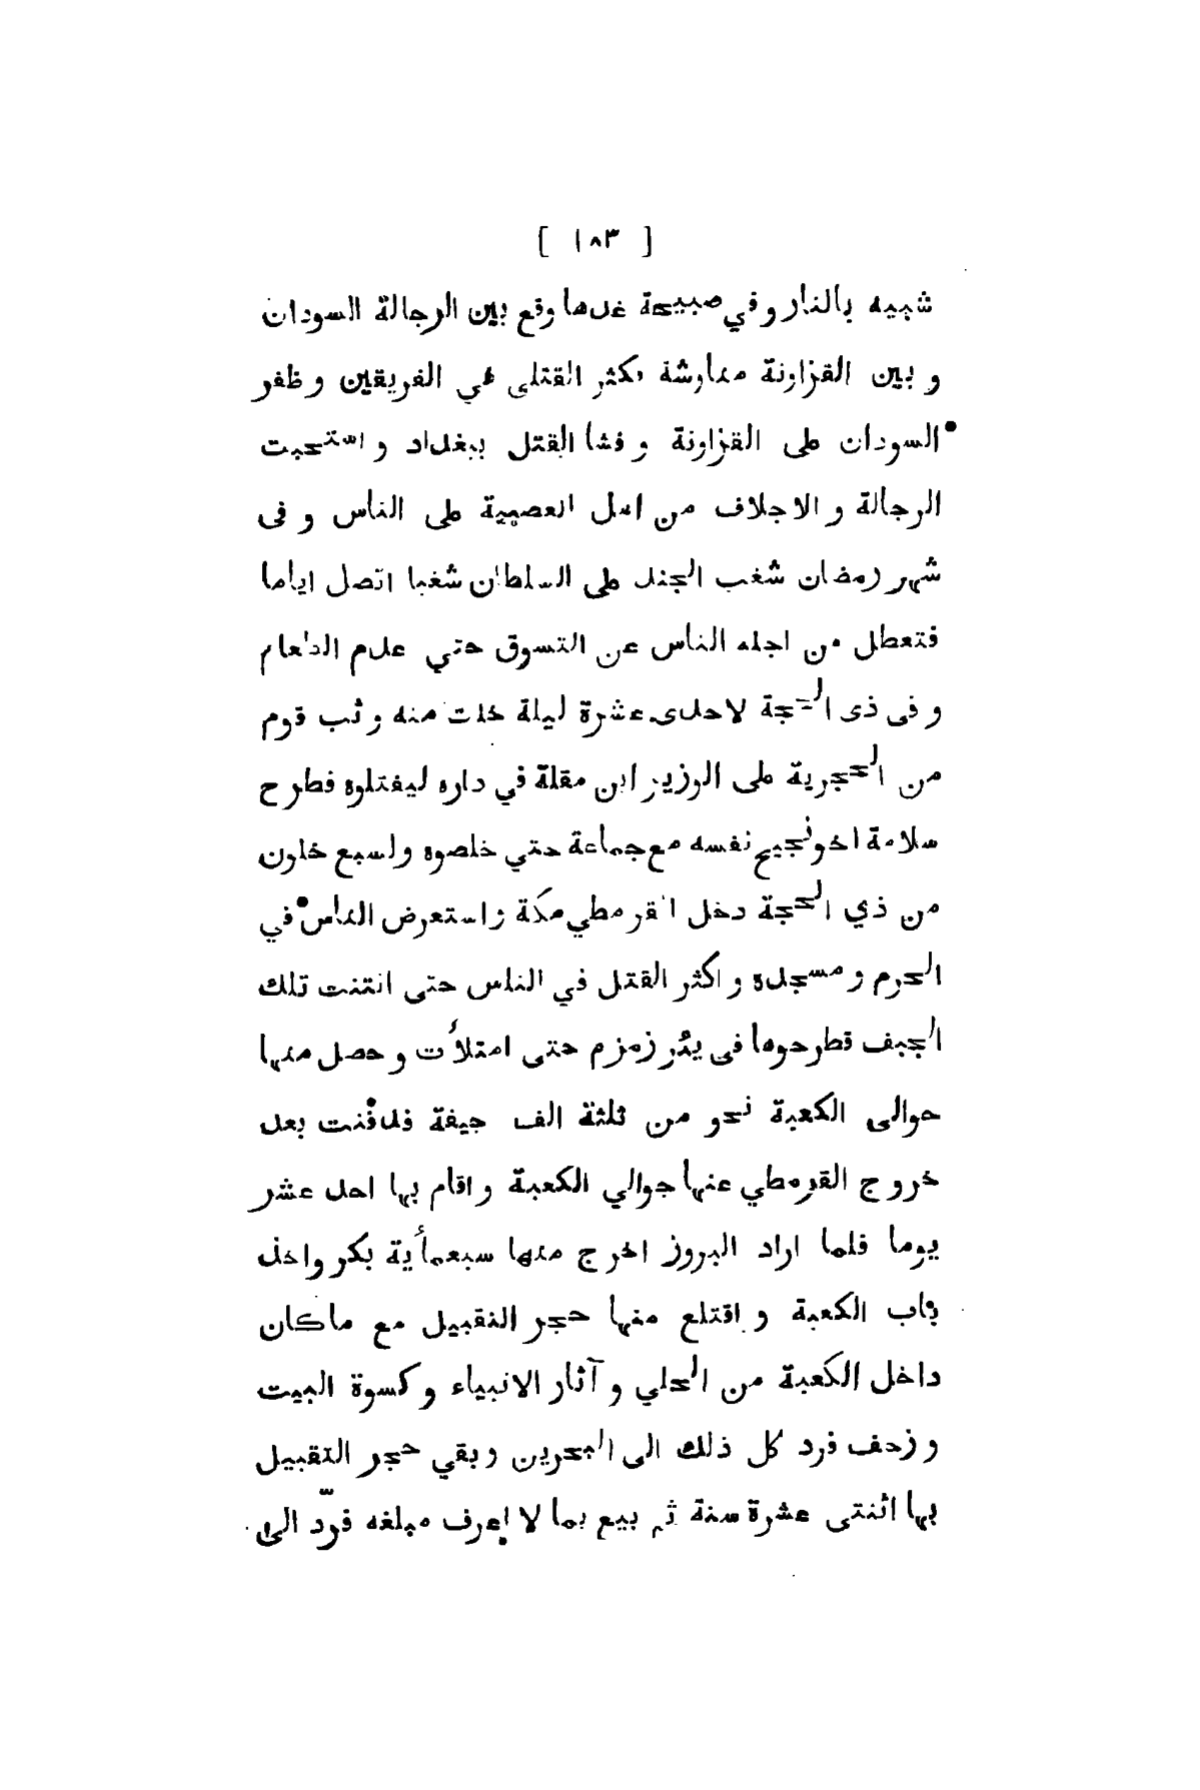 [ ١٨٣ ]
شبيه بالنار وفي صبيحة غدها وقع بين الرجالة السودان
و بين القزاونة مناوشة فكثر القتلى في الفريقين و ظفر
السودان على القزاونة و فشا القتل ببغداد و استحبت
الرجالة و الاجلاف من اهل العصبية على الناس و فى
شهر رمضان شغب الجند على السلطان شغبا اتصل اياما
فتعطل من اجله الناس عن التسوق حتي عدم الطعام
و فى ذى الحجة لاحدى عشرة ليلة خلت منه و ثب قوم
من الحجرية على الوزير ابن مقلة في داره ليفتلوه فطرح
سلامة اخو نجيح نفسه مع جماعة حتي خلصوه و لسبع خلون
من ذي الحجة دخل القرمطي مكة و استعرض الناس في
الحرم و مسجده و اكثر القتل في الناس حتى انتنت تلك
الجيف قطرحوها فى يئر زمزم حتى امتلأت و حصل منها
حوالى الكعبة نحو من ثلثة الف جيفة فدفنت بعد
خروج القرمطي عنها جوالي الكعبة و اقام بها احد عشر
يوما فلما اراد البروز اخرج منها سبعمأية بكر و اخذ
باب الكعبة و اقتلع منها حجر النقبيل مع ماكان
داخل الكعبة من الحلي و آثار الانبياء و كسوة البيت
و زحف فرد كل ذلك الى البحرين و بقي حجر التقبيل
بها اثنتى عشرة سنة ثم بيع بما لا يعرف مبلغه فردّ الى